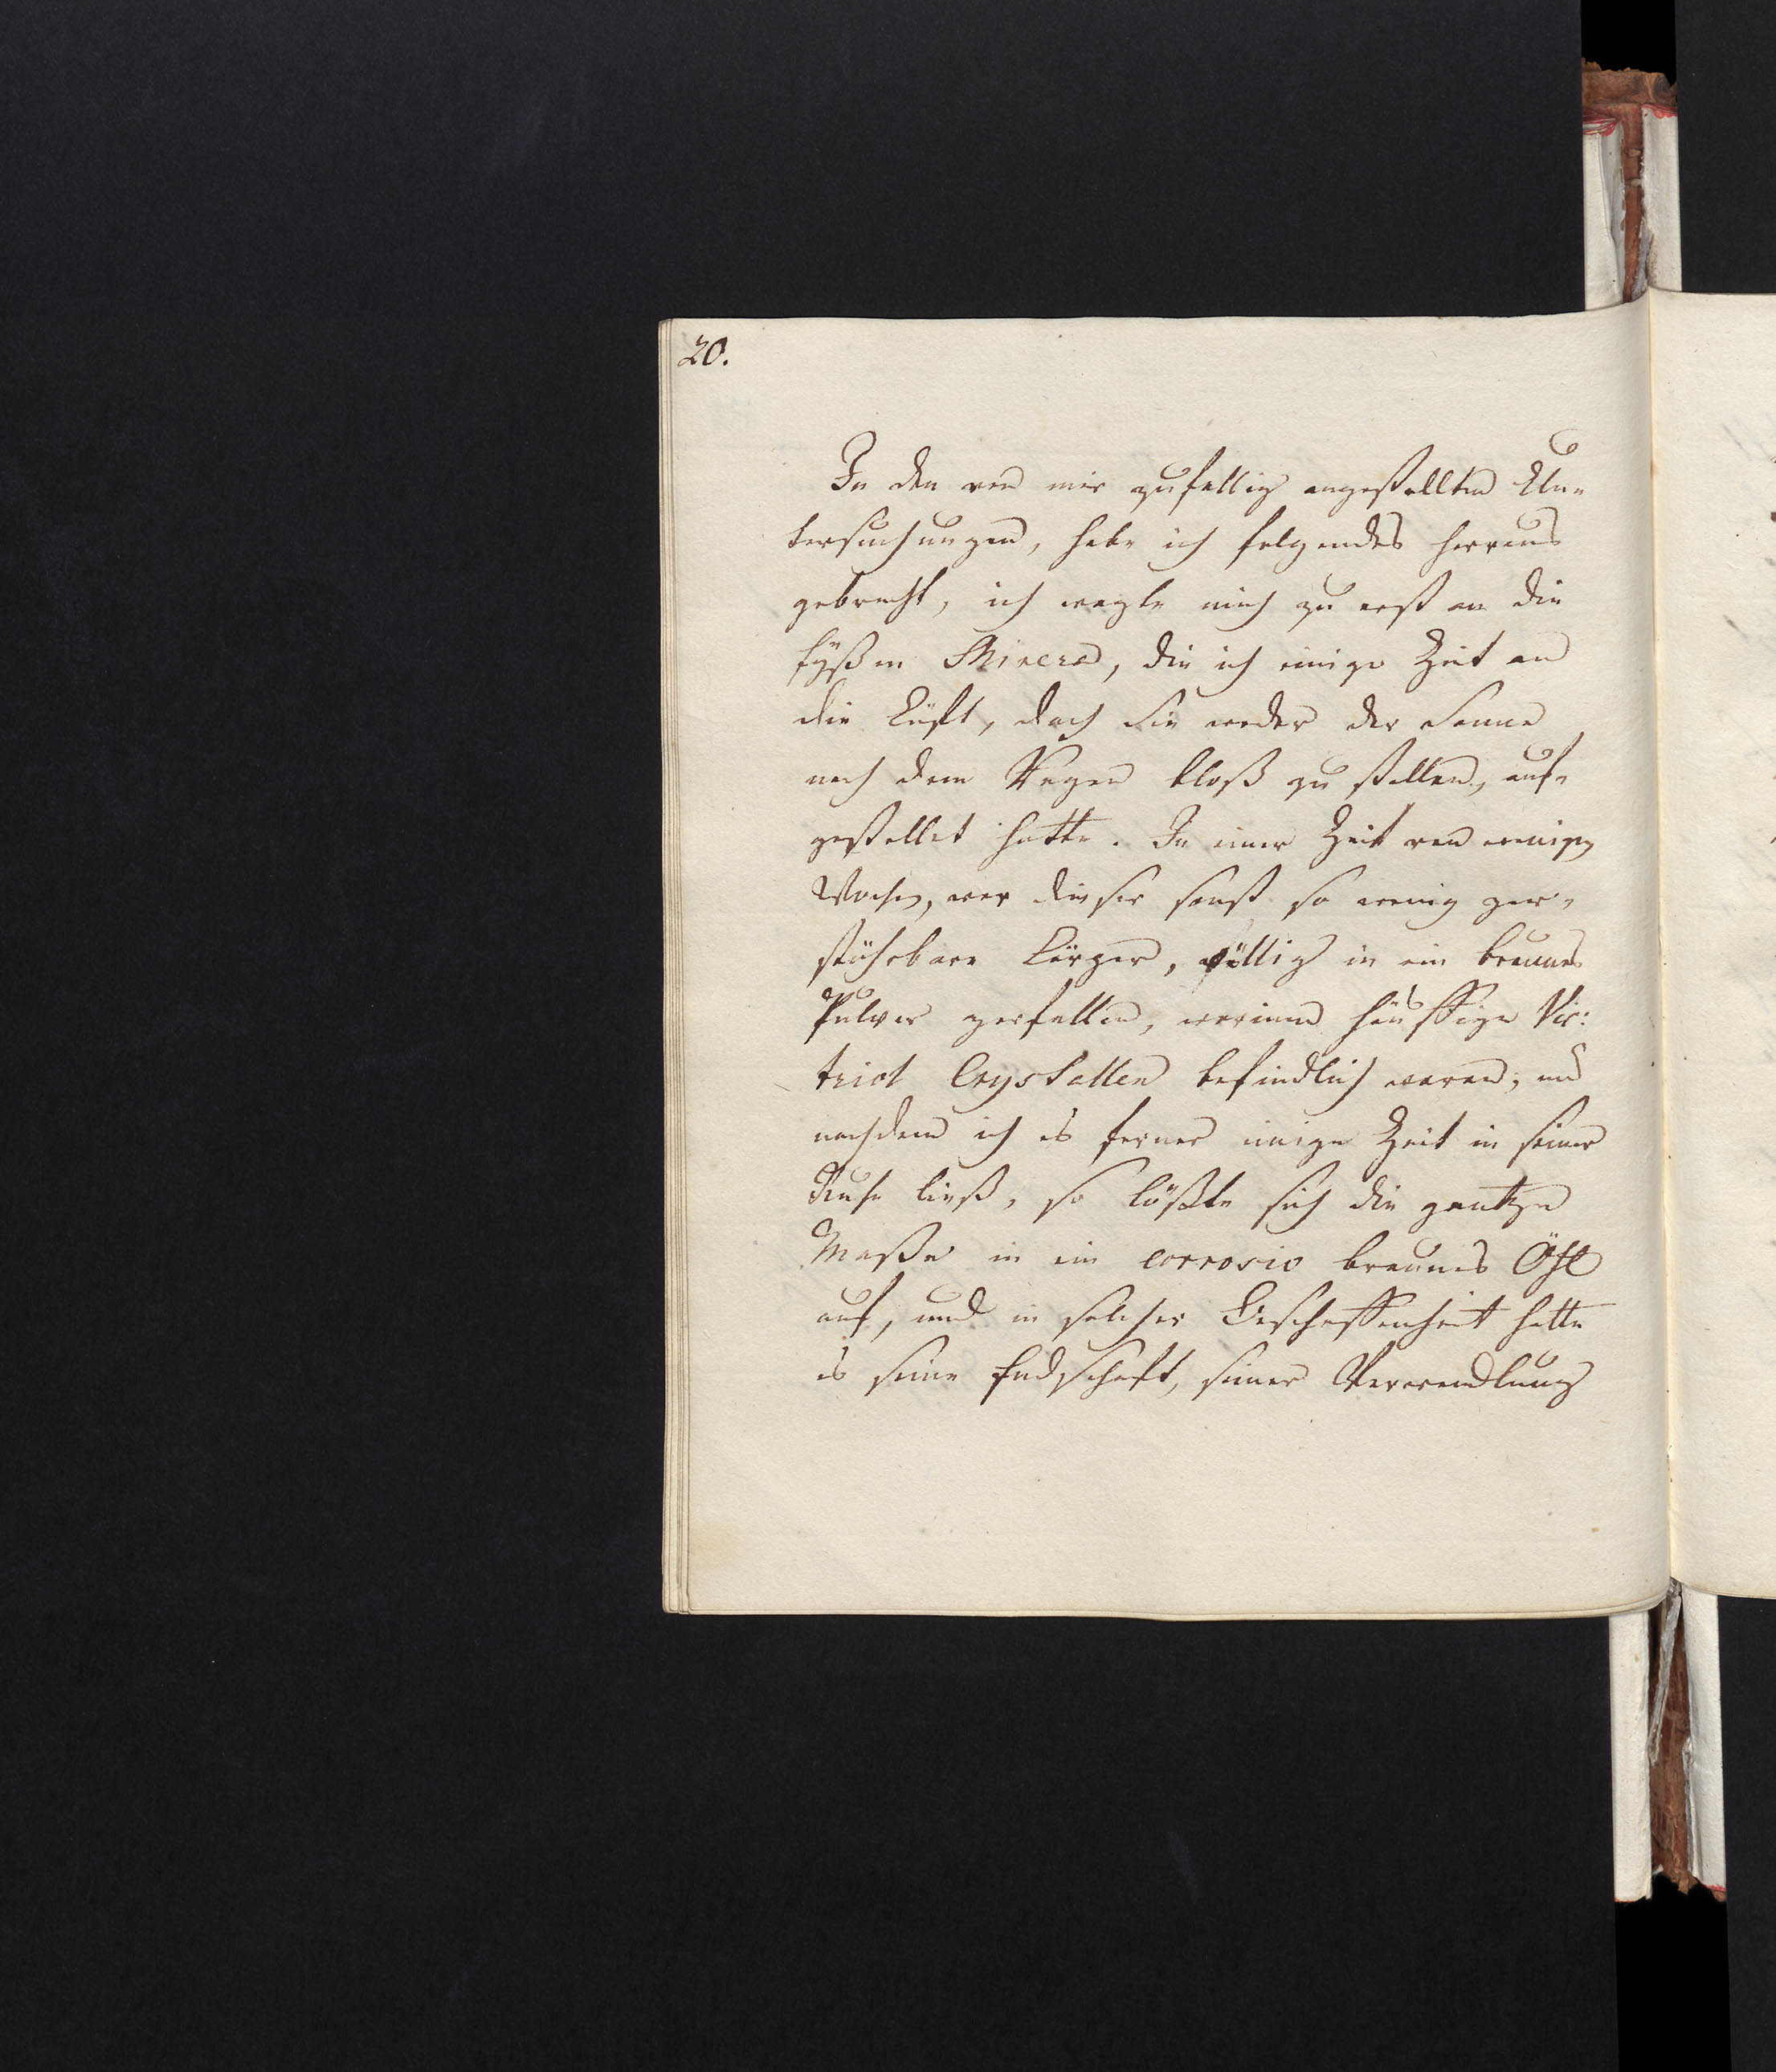 20.
In den von mir zufallig angestellten Un-
tersuchungen, habe ich folgendes herraus
gebracht, ich wagte mich zu erst an die
kyßen Minera, die ich einige Zeit an
die Luft, doch sie weder der Sonne
noch dem Regen bloß zu stellen, auf-
gestellet hatte. In einer Zeit von wenig
Wochen, war dieser sonst so wenig zer-
stöhrbare Cörper, völlig in ein braunes
Pulver zerfallen, worinne häuffige Vic:
triol Crystallen befindlich waren, und
nachdem ich es ferner einige Zeit in seiner
Ruhe ließ, so lößte sich die gantze
Maße in ein corrosiv braunes Öhl
auf, und in solcher Beschaffenheit hatte
es seine Endschaft, seiner Verwandlung